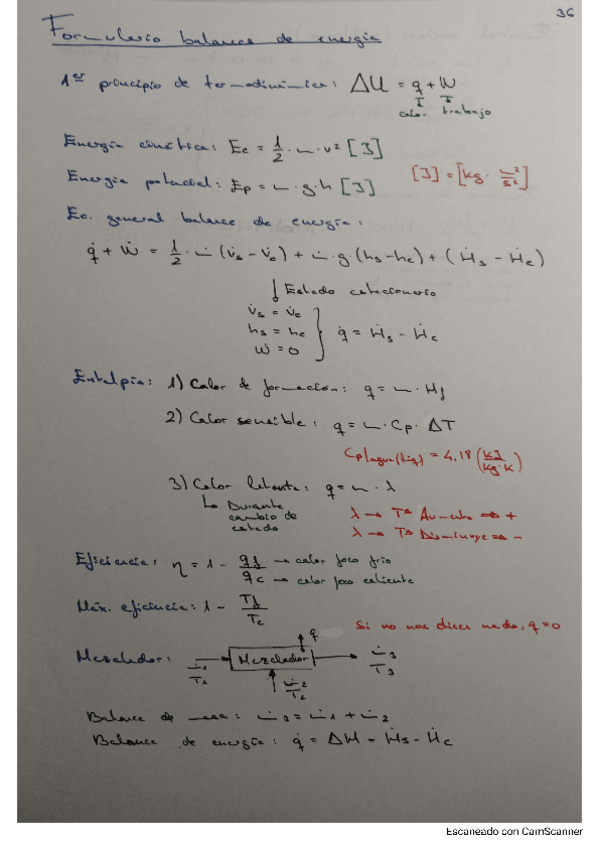 36
Formulario balance de energía
1er principio de termodinámica: ΔU = q + W
calor trabajo
Energía cinética: Ec = 1/2 · m · v² [J]
Energía potencial: Ep = m · g · h [J] [J] = [kg · m²/s²]
Ec. general balance de energía:
q̇ + Ẇ = 1/2 · ṁ (v̇s - v̇e) + ṁ · g · (hs - he) + (Ḣs - Ḣe)
↓ Estado estacionario
v̇s = v̇e
hs = he } q̇ = Ḣs - Ḣe
Ẇ = 0
Entalpía: 1) Calor de formación: q = m · Hf
2) Calor sensible: q = m · Cp · ΔT
Cp|agua(líq) = 4,18 (kJ/kg·K)
3) Calor latente: q = m · λ
↳ Durante cambio de estado
λ → Tª Aumenta ⇒ +
λ → Tª Disminuye ⇒ -
Eficiencia: η = 1 - qf/qc → calor foco frío
→ calor foco caliente
Máx. eficiencia: 1 - Tf/Tc
Si no nos dicen nada, q=0
q
Mezclador: ṁ1/T1 → Mezclador → ṁ3/T3
ṁ2/T2
Balance de masa: ṁ3 = ṁ1 + ṁ2
Balance de energía: q̇ = ΔH = Ḣs - Ḣe
Escaneado con CamScanner